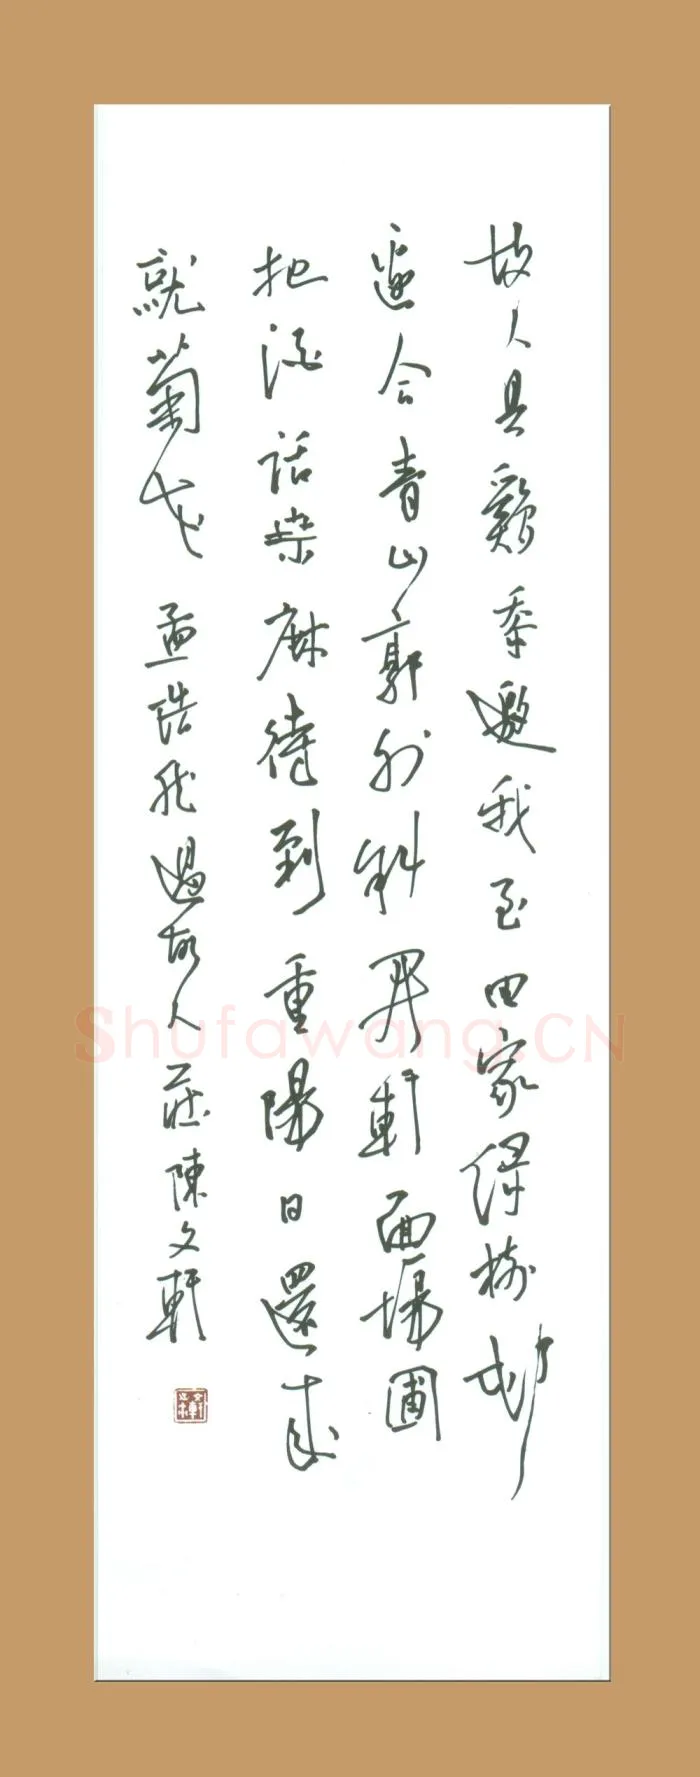 故人具鷄黍邀我至田家綠樹邨
邊合青山郭外斜開軒面場圃
把酒話桑麻待到重陽日還來
就菊花 孟浩然過故人莊陳文軒
Shufawang.CN